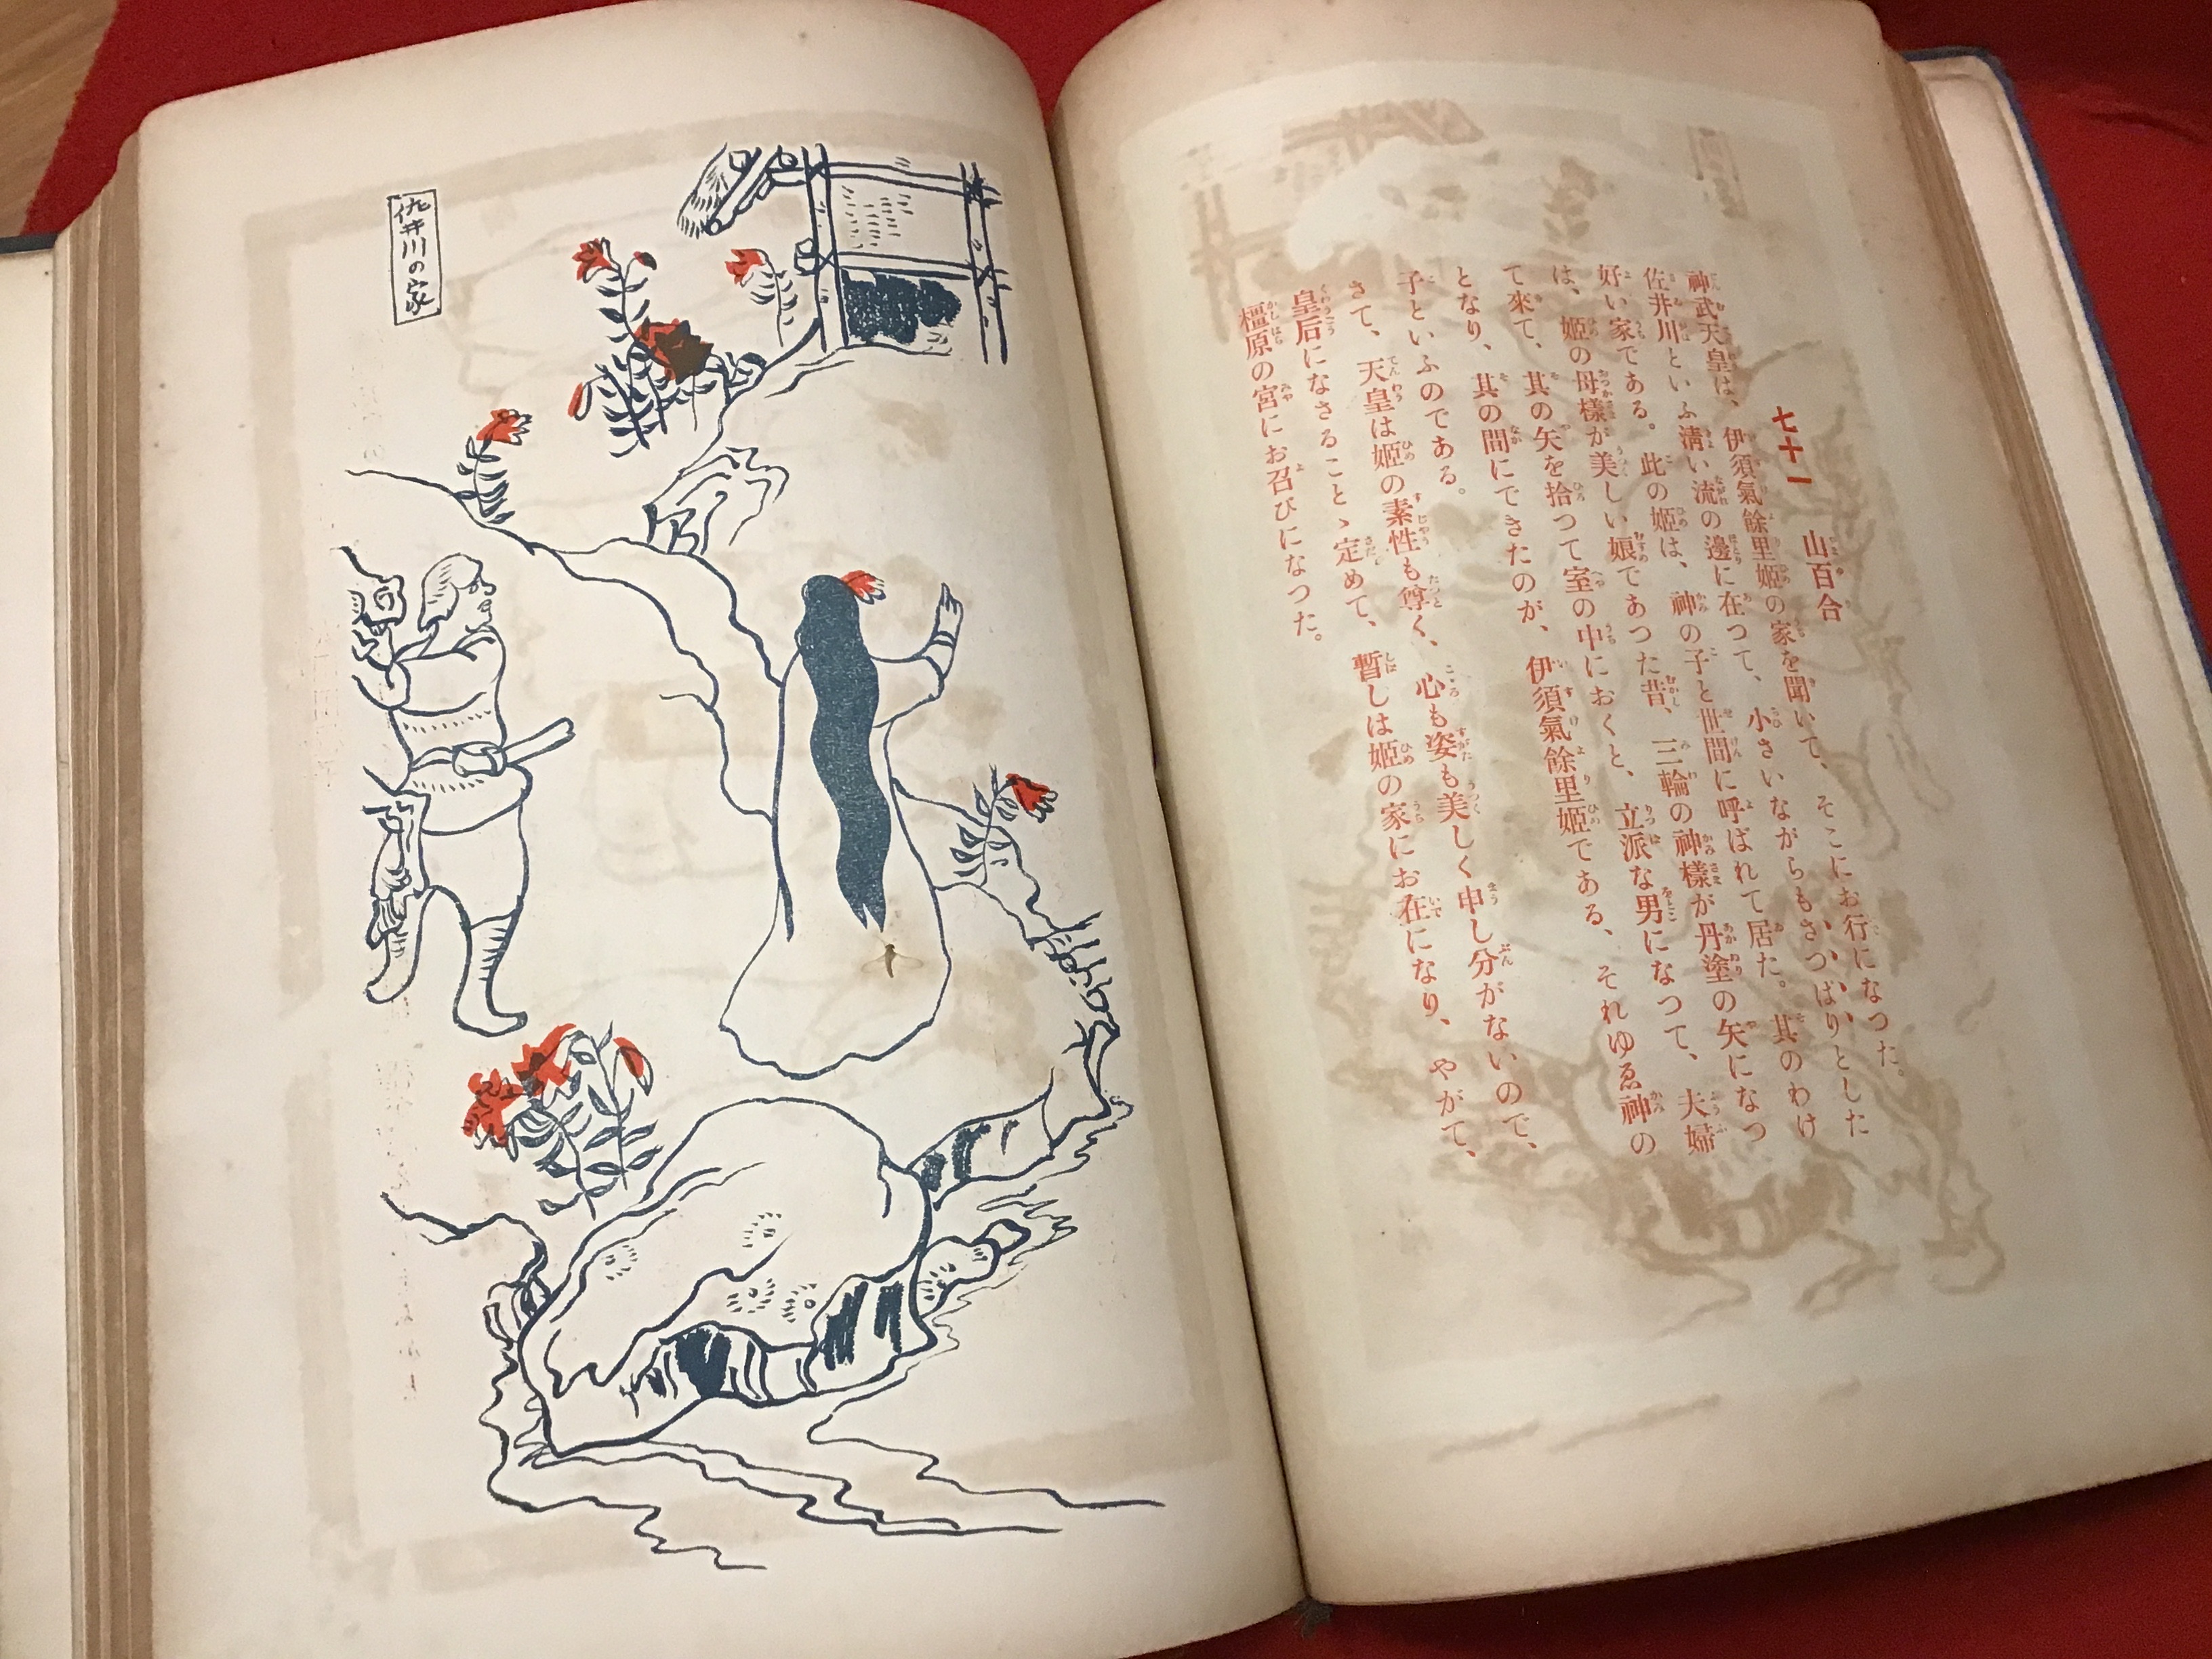 七十一 山百合
神武天皇は、伊須氣餘里姬の家を聞いて、そこにお行になつた。
佐井川といふ淸い流の邊に在つて、小さいながらもさつぱりとした
好い家である。此の姬は、神の子と世間に呼ばれて居た。其のわけ
は、姬の母樣が美しい娘であつた昔、三輪の神樣が丹塗の矢になつ
て來て、其の矢を拾つて室の中におくと、立派な男になつて、夫婦
となり、其の間にできたのが、伊須氣餘里姬である、それゆゑ神の
子といふのである。
さて、天皇は姬の素性も尊く、心も姿も美しく申し分がないので、
皇后になさることゝ定めて、暫しは姬の家にお在になり、やがて、
橿原の宮にお召びになつた。
佐井川の家